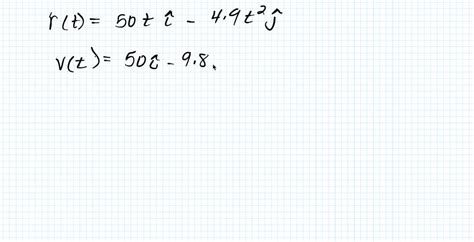 r(t) = 50t î - 4.9t² ĵ
v(t) = 50î - 9.8.